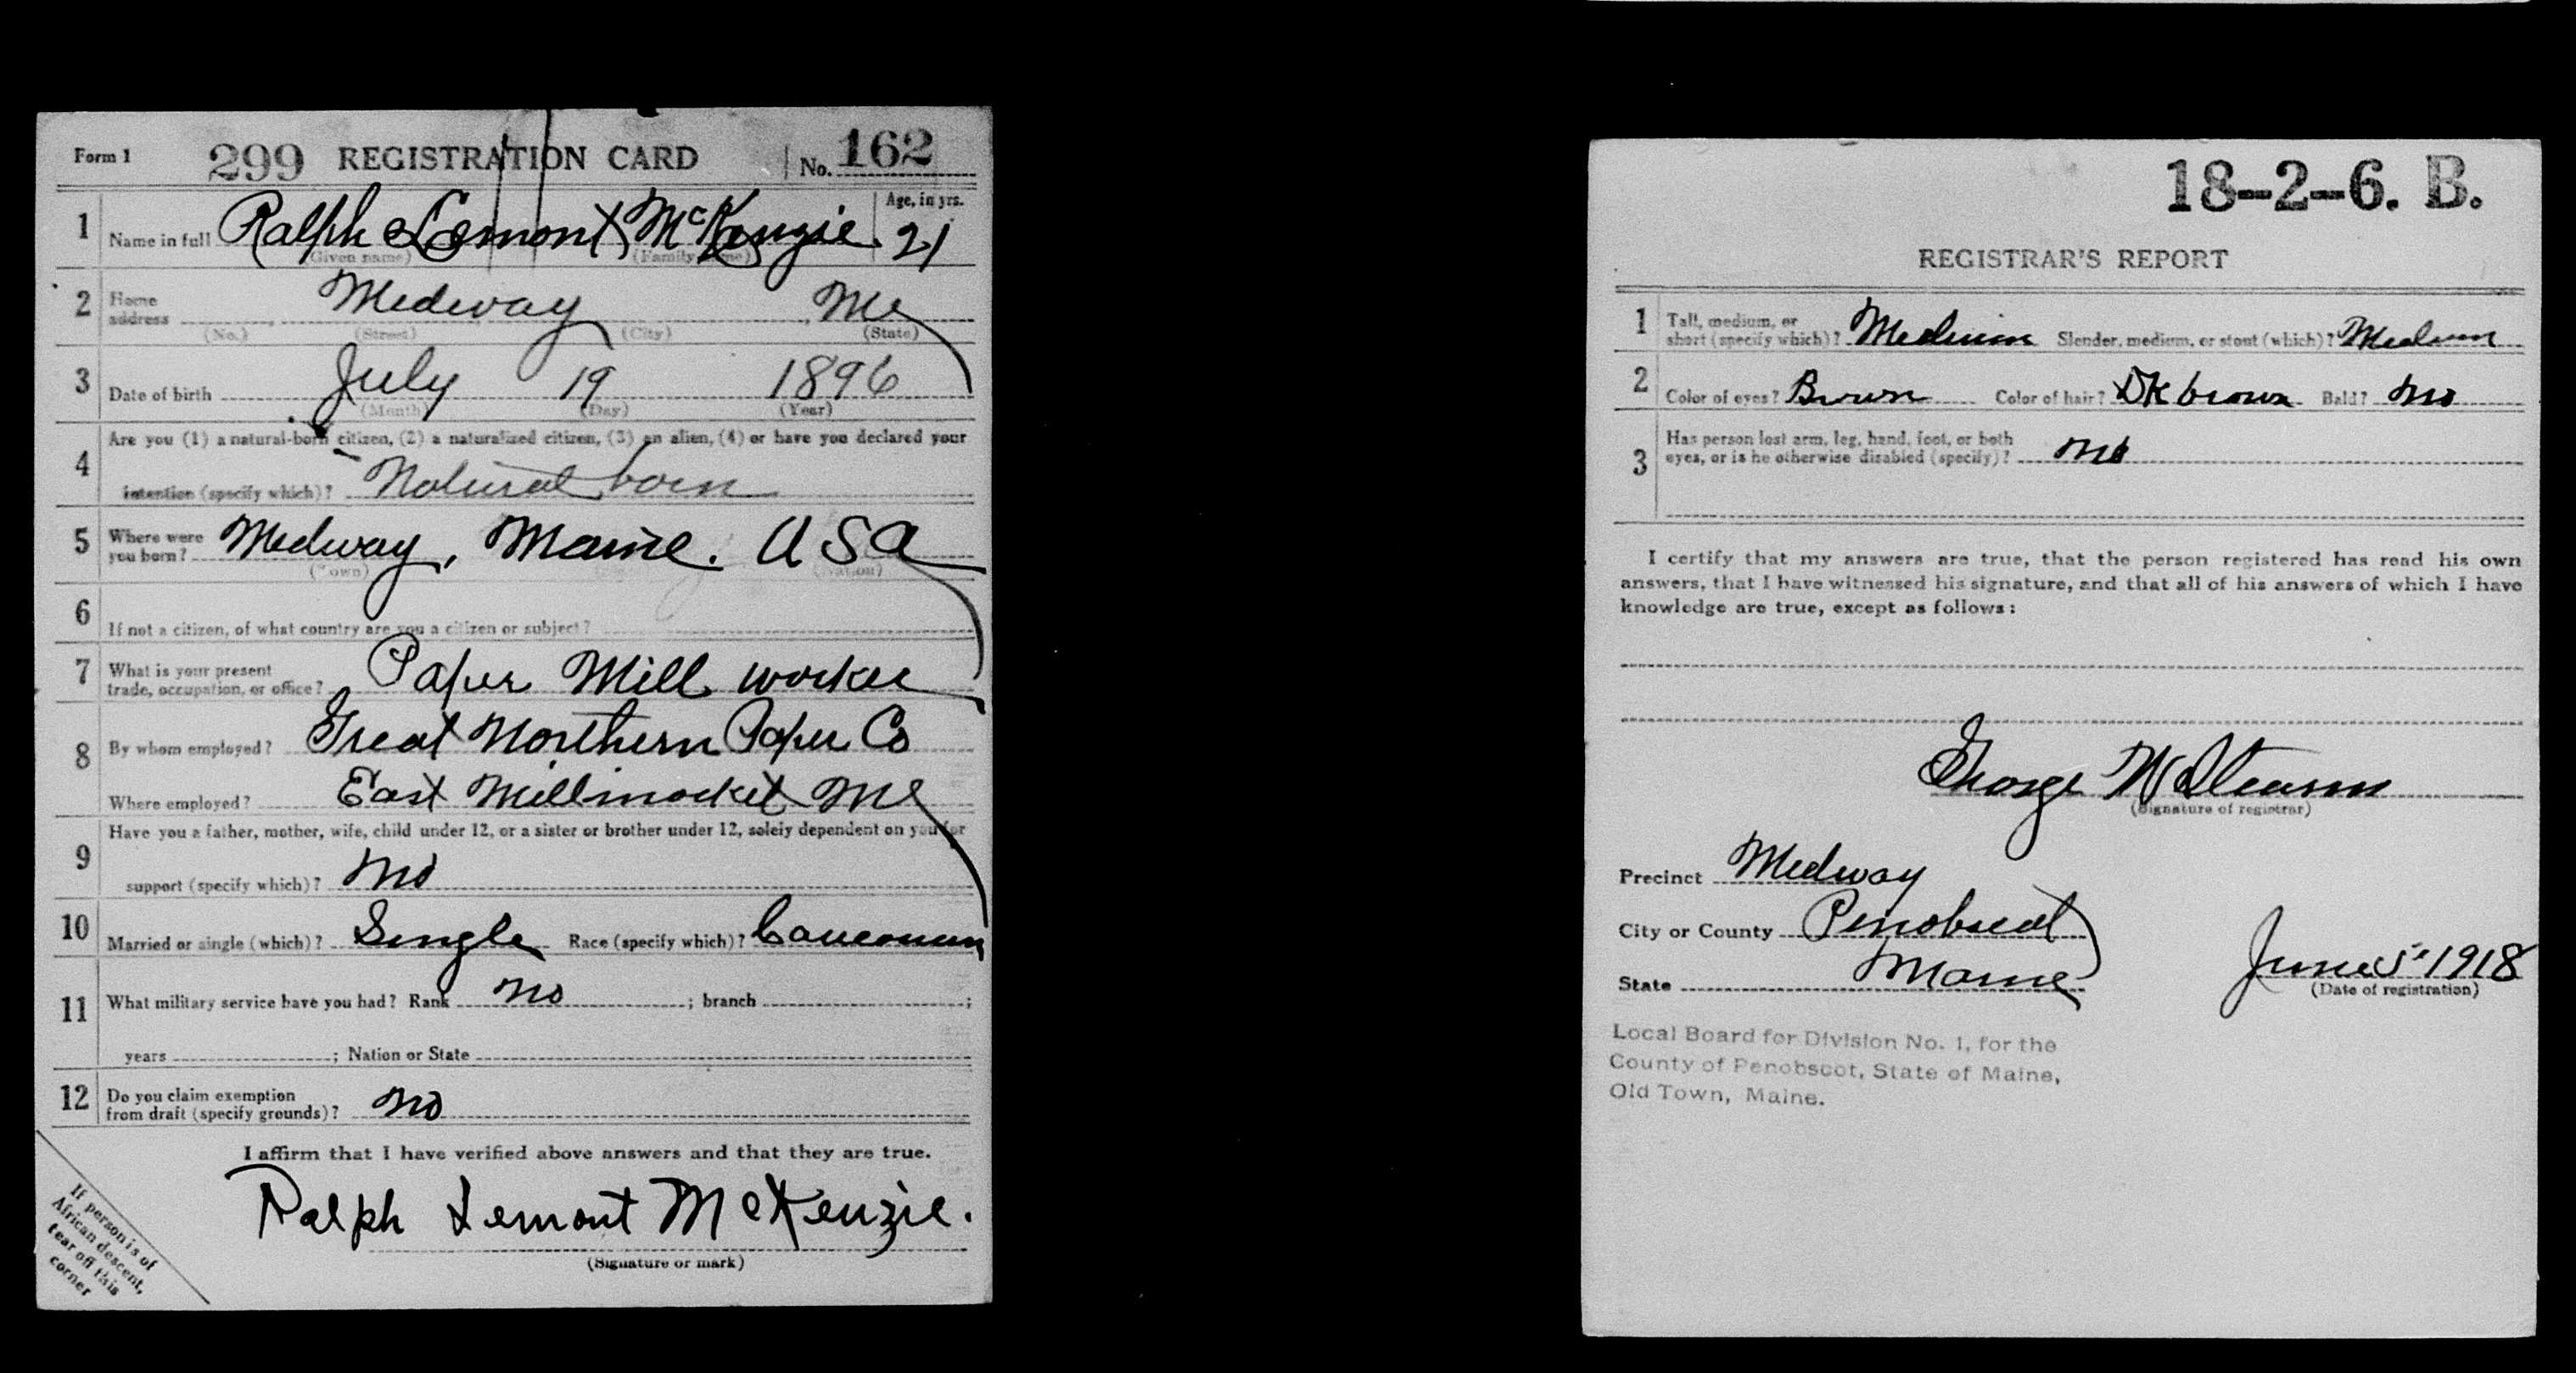 Form 1 299 REGISTRATION CARD No. 162
1 Name in full Ralph Lemont McKenzie Age, in yrs. 21
(Given name) (Family name)
2 Home address Medway Me
(No.) (Street) (City) (State)
3 Date of birth July 19 1896
(Month) (Day) (Year)
4 Are you (1) a natural-born citizen, (2) a naturalized citizen, (3) an alien, (4) or have you declared your
intention (specify which)? Natural born
5 Where were you born? Medway, Maine. U S A
(Town) (Nation)
6 If not a citizen, of what country are you a citizen or subject?
7 What is your present trade, occupation, or office? Paper Mill worker
8 By whom employed? Great Northern Paper Co
Where employed? East Millinocket Me
9 Have you a father, mother, wife, child under 12, or a sister or brother under 12, solely dependent on you for
support (specify which)? No
10 Married or single (which)? Single Race (specify which)? Caucasian
11 What military service have you had? Rank No ; branch ;
years ; Nation or State
12 Do you claim exemption from draft (specify grounds)? No
I affirm that I have verified above answers and that they are true.
Ralph Lemont McKenzie.
(Signature or mark)
If person is of
African descent,
tear off this
corner
18-2-6. B.
REGISTRAR'S REPORT
1 Tall, medium, or short (specify which)? Medium Slender, medium, or stout (which)? Medium
2 Color of eyes? Brown Color of hair? Dk brown Bald? No
3 Has person lost arm, leg, hand, foot, or both
eyes, or is he otherwise disabled (specify)? No
I certify that my answers are true, that the person registered has read his own
answers, that I have witnessed his signature, and that all of his answers of which I have
knowledge are true, except as follows:
George W Stearns
(Signature of registrar)
Precinct Medway
City or County Penobscot
State Maine June 5" 1918
(Date of registration)
Local Board for Division No. 1, for the
County of Penobscot, State of Maine,
Old Town, Maine.